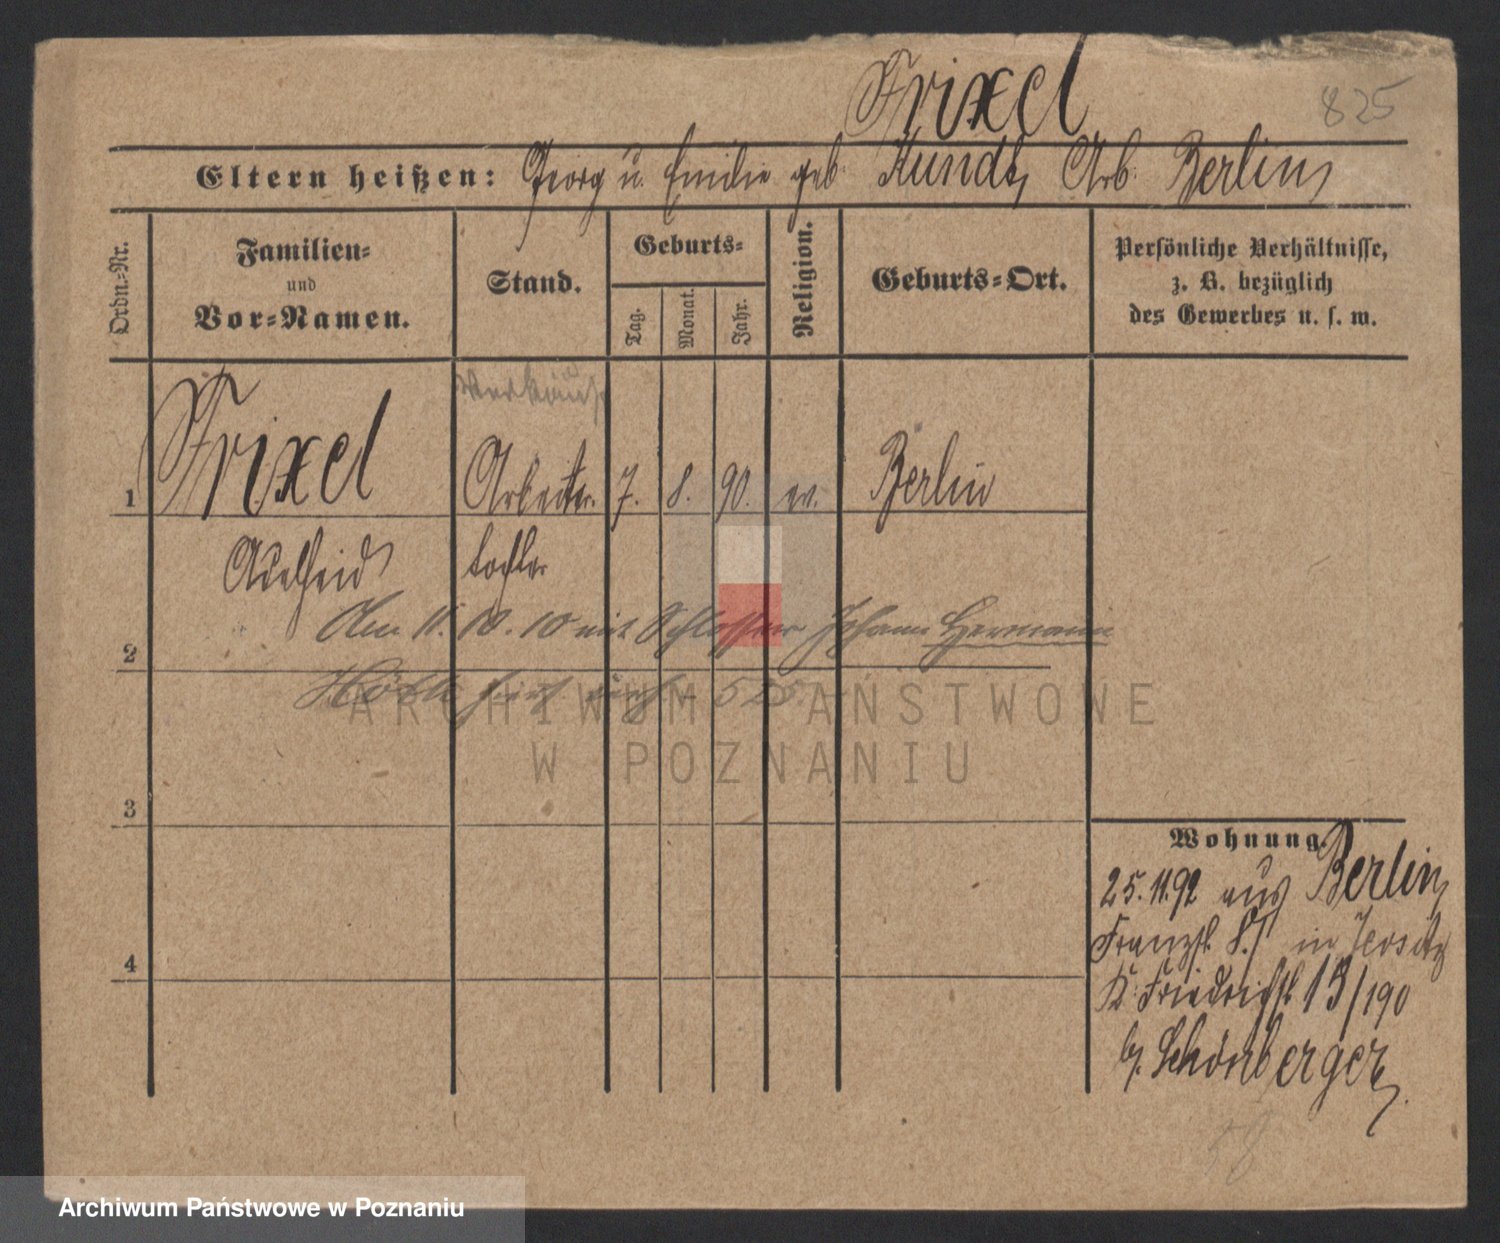 Frixel
825
Eltern heißen: Georg u. Emilie geb. Kundt, Arb. Berlin,
Ordn.-Nr.
Familien-
und
Vor-Namen.
Stand.
Geburts-
Tag.
Monat.
Jahr.
Religion.
Geburts-Ort.
Persönliche Verhältnisse,
z. B. bezüglich
des Gewerbes u. s. w.
1 Frixel Arbeiter- 7. 8. 90. ev. Berlin
Adelheid tochter
Am 11. 10. 10 mit Schlosser Johann Hermann
2
ARCHIWUM PAŃSTWOWE
W POZNANIU
3
4
Wohnung.
25.11.92 aus Berlin,
Franzstr. 8./ in Jersitz
K. Friedrichstr. 15/190
b. Schönberger.
58
Archiwum Państwowe w Poznaniu